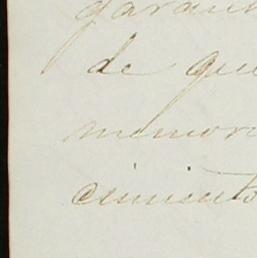 garant
de que
memori
cimiento